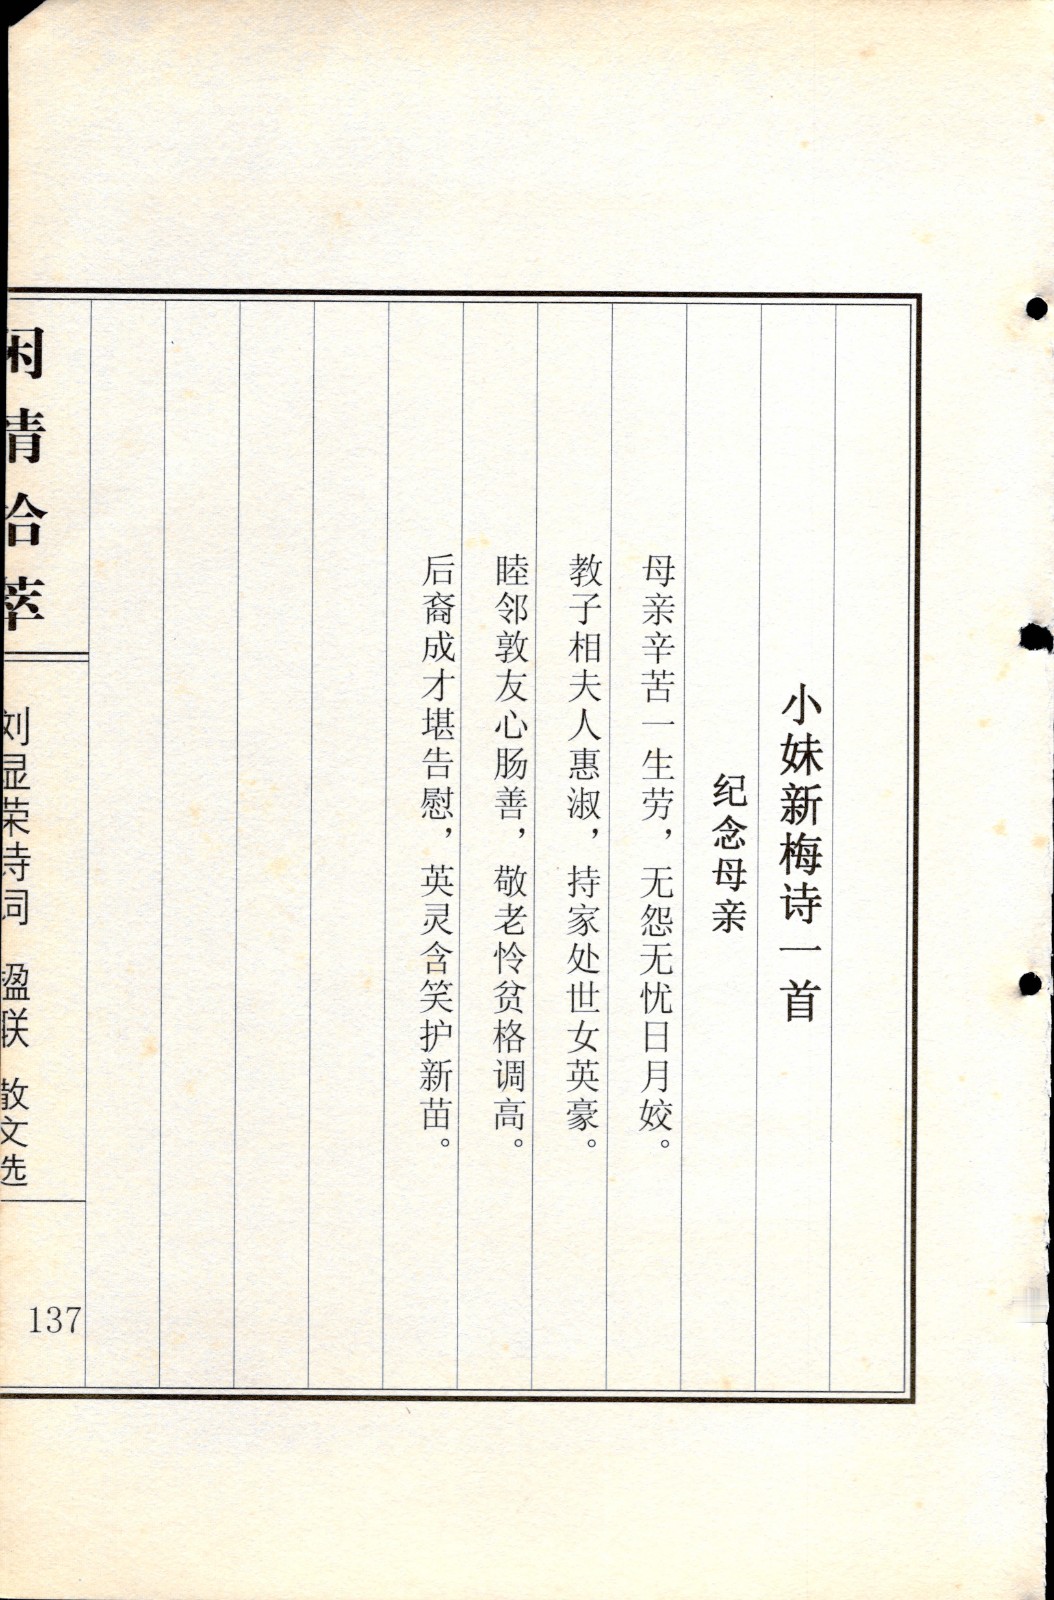 小妹新梅诗一首
纪念母亲
母亲辛苦一生劳，无怨无忧日月姣。
教子相夫人惠淑，持家处世女英豪。
睦邻敦友心肠善，敬老怜贫格调高。
后裔成才堪告慰，英灵含笑护新苗。
闲情拾萃
刘显荣诗词 楹联 散文选
137